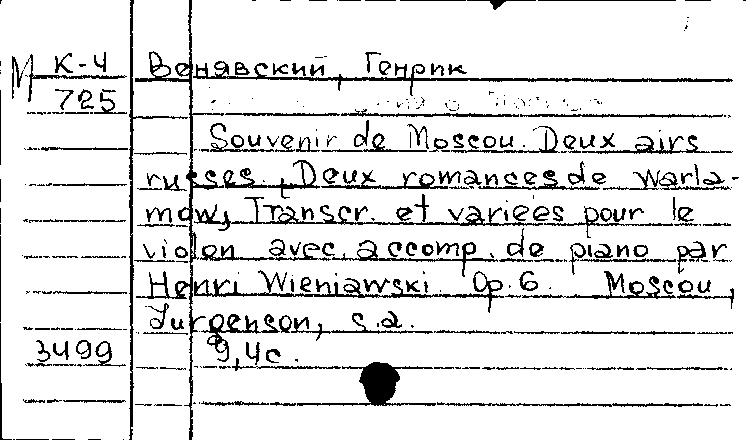 М К-4 Венявский, Генрик
725
Souvenir de Moscou. Deux airs
russes. Deux romances de Warla-
mow, Transcr. et variées pour le
violon avec. accomp. de piano par
Henri Wieniawski. Op. 6. Moscou,
Jurgenson, s.a.
3499 9,4с.